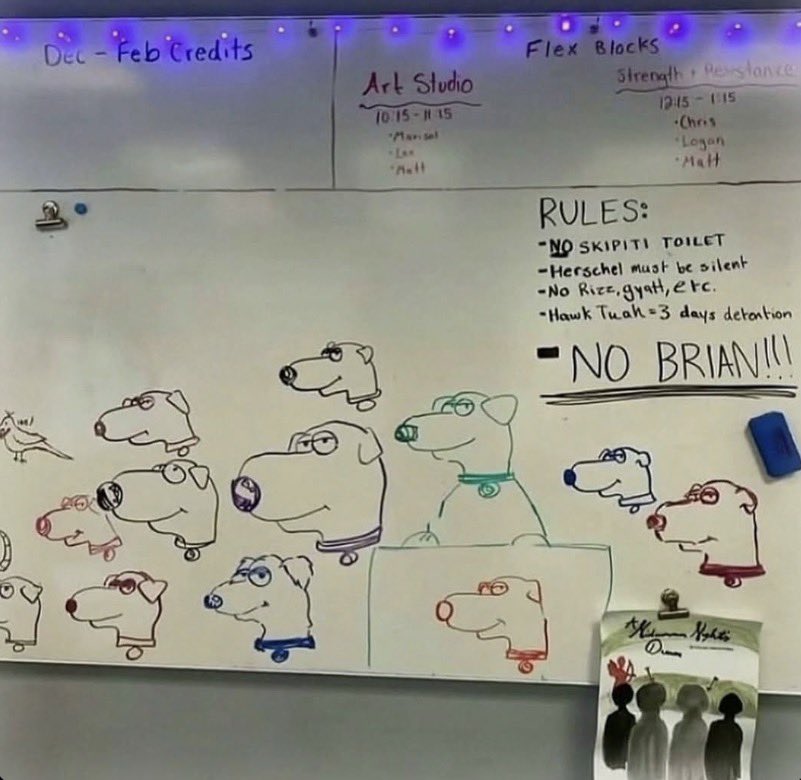 Dec - Feb Credits
Flex Blocks
Art Studio
10:15 - 11:15
·Marisol
·Matt
Strength + Resistance
12:15 - 1:15
·Chris
·Logan
·Matt
RULES:
-NO SKIPITI TOILET
-Herschel must be silent
-No Rizz, gyatt, etc.
-Hawk Tuah = 3 days detention
- NO BRIAN!!!
A Midsummer Night's